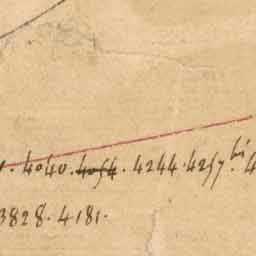 . 4040. 4054. 4244. 4257.bis 4
3828. 4181.